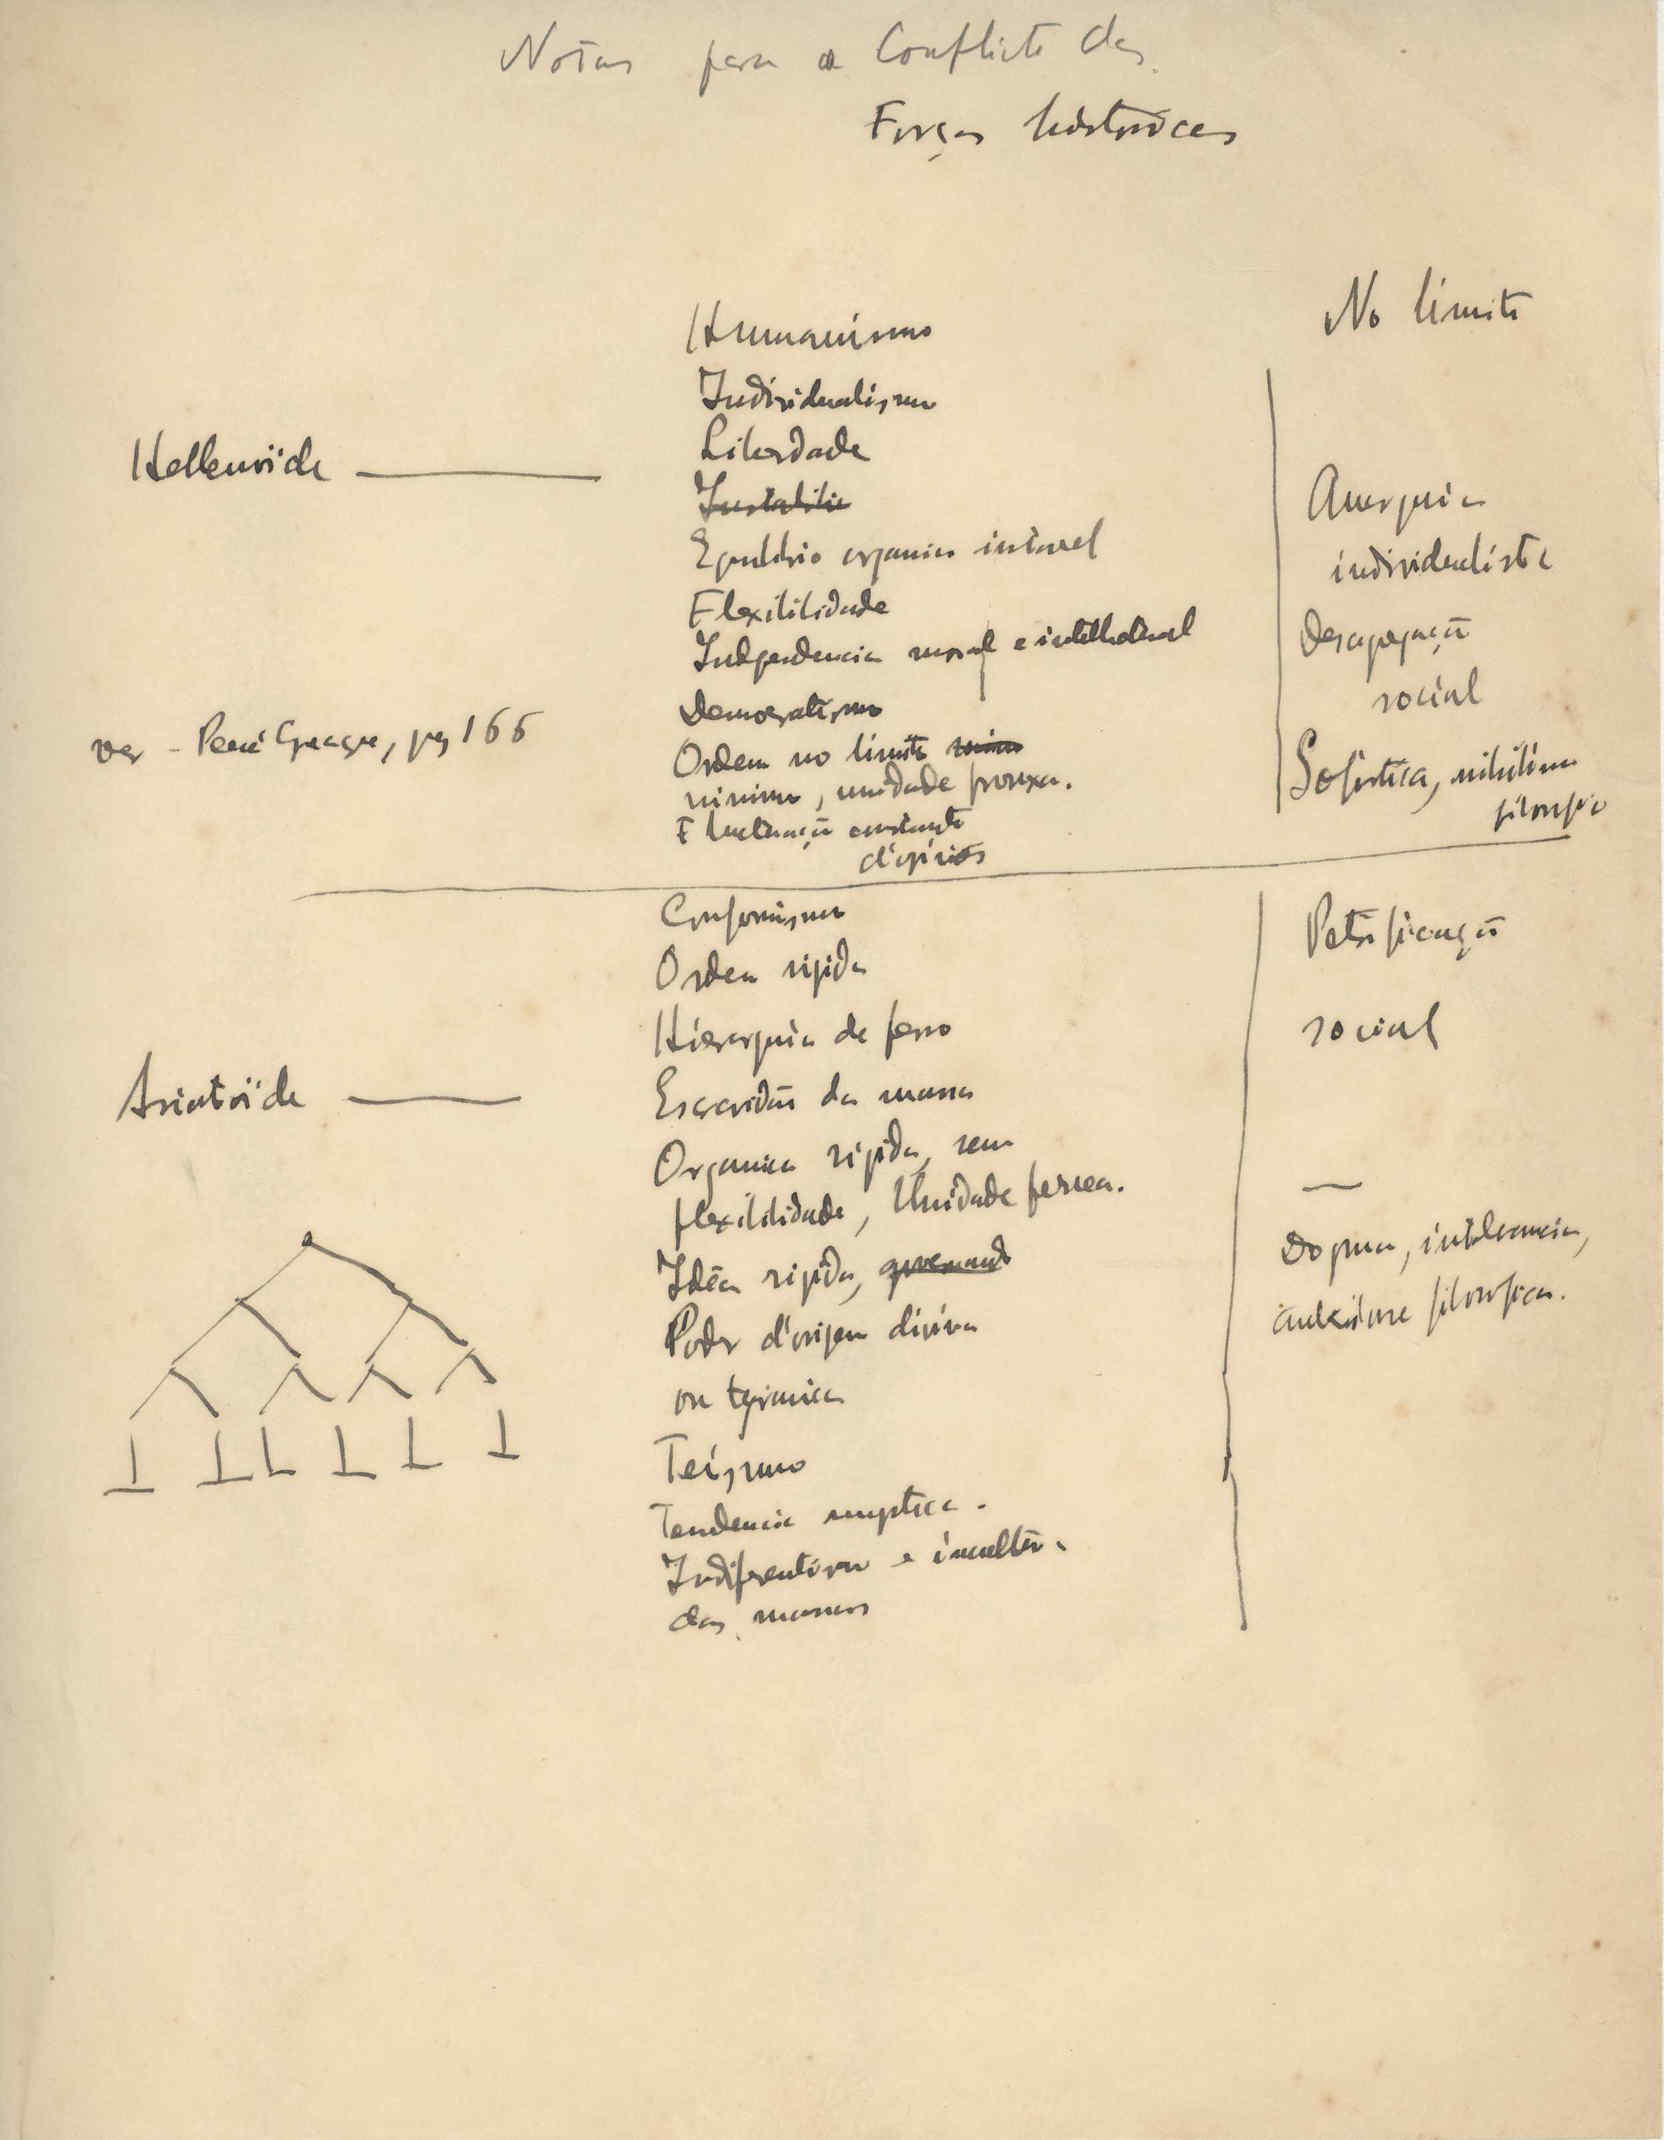 Notas para o Conflicto das
Forças históricas
No limite
Humanismo
Individualismo
Liberdade
Hellenoïde
Instabili
Equilibrio organico instavel
Anarquia
individualista
Flexibilidade
Independencia moral e intellectual
Desagregação
social
Democratismo
ver - René Grousset, pag 166
Ordem no limite minimo
minimo, unidade frouxa.
Sofistica, nihilismo
filosofico
Fluctuação constante
d'opiniões
Conformismo
Petrificação
social
Ordem rigida
Hierarquia de ferro
Asiatoïde
Escravidão da massa
Organica rigida, sem
flexibilidade, Unidade ferrea.
—
Dogma, intolerancia,
filosofica.
Idéa rigida, governando
Poder d'origem divina
ou tyranica
Teísmo
Tendencia mystica.
Indiferentismo e incultura
das massas